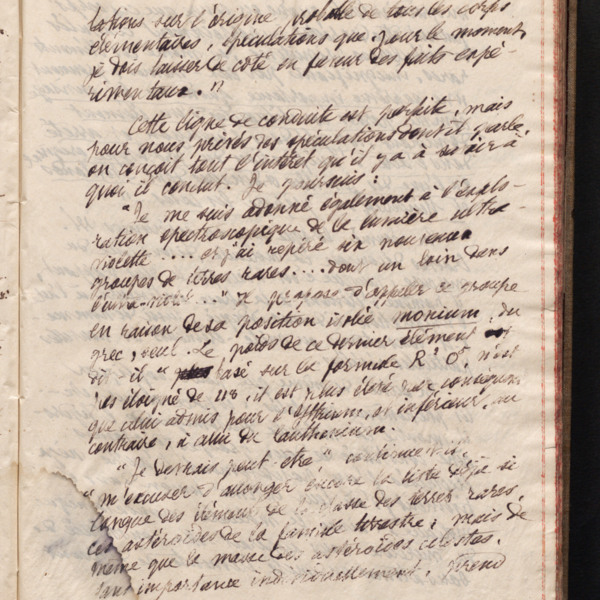 lations sur l'origine probable de tous les corps
élémentaires, spéculations que, pour le moment
je dois laisser de côté en faveur des faits expé-
rimentaux. "
Cette ligne de conduite est parfaite, mais
pour nous privés des spéculations dont il parle,
on conçoit tout l'intérêt qu'il y a à savoir à
quoi il conclut. Je poursuis :
"Je me suis adonné également à l'explo-
ration spectroscopique de la lumière ultra-
violette .... et j'ai repéré six nouveaux
groupes de terres rares .... dont un loin dans
l'ultra-violet ..." Je propose d'appeler ce groupe
en raison de sa position isolée monium, du
grec, seul. Le poids de ce dernier élément
dit-il " basé sur la formule R² O³, n'est
pas éloigné de 118, il est plus élevé par conséquent
que celui admis pour l'yttrium, et inférieur, au
contraire, à celui du lanthanium.
"Je devrais peut-être," continue-t-il,
"m'excuser d'allonger encore la liste déjà si
longue des éléments de la classe des terres rares,
ces astéroïdes de la famille terrestre ; mais de
même que la masse des astéroïdes célestes,
sans importance individuellement, prend